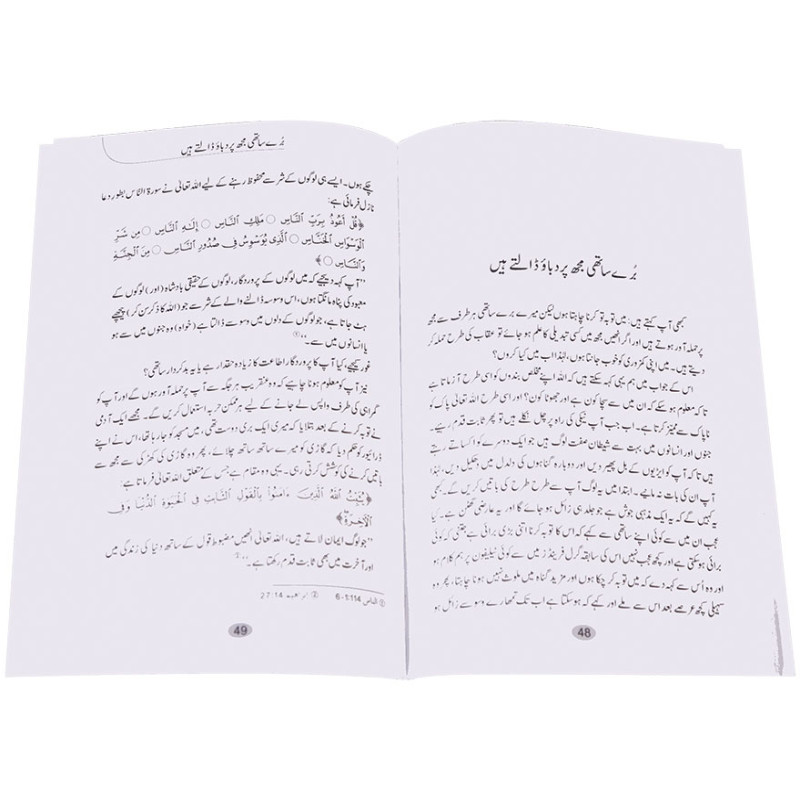 بُرے ساتھی مجھ پر دباؤ ڈالتے ہیں
کبھی آپ کہتے ہیں: میں توبہ تو کرنا چاہتا ہوں لیکن میرے برے ساتھی ہر طرف سے مجھ
پر حملہ آور ہوتے ہیں اور اگر انھیں مجھ میں کسی تبدیلی کا علم ہو جائے تو عقاب کی طرح حملہ کر
دیتے ہیں۔ میں اپنی کمزوری کو خوب جانتا ہوں، لہٰذا اب میں کیا کروں؟
اس کے جواب میں ہم یہی کہہ سکتے ہیں کہ اللہ اپنے مخلص بندوں کو اسی طرح آزماتا ہے
تاکہ معلوم ہو سکے کہ ان میں سے سچا کون ہے اور جھوٹا کون؟ اور اسی طرح اللہ تعالیٰ پاک کو
ناپاک سے ممیّز کرتا ہے۔ اب جب آپ نیکی کی راہ پر چل نکلے ہیں تو پھر ثابت قدم رہیے۔
جنوں اور انسانوں میں بہت سے شیطان صفت لوگ ہیں جو ایک دوسرے کو اکساتے رہتے
ہیں تاکہ آپ کو ایڑیوں کے بل پھیر دیں اور دوبارہ گناہوں کی دلدل میں دھکیل دیں، لہٰذا
آپ ان کی بات نہ مانیے۔ ابتدا میں یہ لوگ آپ سے طرح طرح کی باتیں کریں گے۔ کبھی
یہ کہیں گے کہ یہ ایک مذہبی جوش ہے جو جلد ہی زائل ہو جائے گا اور یہ عارضی گھٹن ہے۔ کیا
عجب ان میں سے کوئی اپنے ساتھی سے کہے کہ اس کا توبہ کرنا اتنی بڑی برائی ہے جتنی کہ کوئی
برائی ہو سکتی ہے اور کچھ عجب نہیں اس کی سابقہ گرل فرینڈز میں سے کوئی ٹیلیفون پر ہم کلام ہو
اور وہ اُس سے کہہ دے کہ میں توبہ کر چکا ہوں اور مزید گناہ میں ملوث نہیں ہونا چاہتا، پھر وہ
سہیلی کچھ عرصے بعد اس سے ملے اور کہے کہ ہو سکتا ہے اب تک تمھارے وسوسے زائل ہو
48
بُرے ساتھی مجھ پر دباؤ ڈالتے ہیں
چکے ہوں۔ ایسے ہی لوگوں کے شر سے محفوظ رہنے کے لیے اللہ تعالیٰ نے سورۃ الناس بطور دعا
نازل فرمائی ہے:
﴿قُلْ أَعُوذُ بِرَبِّ ٱلنَّاسِ ○ مَلِكِ ٱلنَّاسِ ○ إِلَٰهِ ٱلنَّاسِ ○ مِن شَرِّ
ٱلْوَسْوَاسِ ٱلْخَنَّاسِ ○ ٱلَّذِى يُوَسْوِسُ فِى صُدُورِ ٱلنَّاسِ ○ مِنَ ٱلْجِنَّةِ
وَٱلنَّاسِ ○﴾
”آپ کہہ دیجیے کہ میں لوگوں کے پروردگار، لوگوں کے حقیقی بادشاہ (اور) لوگوں کے
معبود کی پناہ مانگتا ہوں، اس وسوسہ ڈالنے والے کے شر سے جو (اللہ کا ذکر سن کر) پیچھے
ہٹ جاتا ہے، جو لوگوں کے دلوں میں وسوسے ڈالتا ہے (خواہ) وہ جنوں میں سے ہو
یا انسانوں میں سے۔“ ①
غور کیجیے، کیا آپ کا پروردگار اطاعت کا زیادہ حقدار ہے یا یہ بدکردار ساتھی؟
نیز آپ کو معلوم ہونا چاہیے کہ وہ عنقریب ہر جگہ سے آپ پر حملہ آور ہوں گے اور آپ کو
گمراہی کی طرف واپس لے جانے کے لیے ہر ممکن حربہ استعمال کریں گے۔ مجھے ایک آدمی
نے توبہ کرنے کے بعد بتلایا کہ میری ایک بری دوست تھی، میں مسجد کو جا رہا تھا، اس نے اپنے
ڈرائیور کو حکم دیا کہ گاڑی کو میرے ساتھ ساتھ چلائے، پھر وہ گاڑی کی کھڑکی سے مجھ سے
باتیں کرنے کی کوشش کرتی رہی۔ یہی وہ مقام ہے جس کے متعلق اللہ تعالیٰ فرماتا ہے:
﴿يُثَبِّتُ ٱللَّهُ ٱلَّذِينَ ءَامَنُوا۟ بِٱلْقَوْلِ ٱلثَّابِتِ فِى ٱلْحَيَوٰةِ ٱلدُّنْيَا وَفِى
ٱلْءَاخِرَةِ﴾
”جو لوگ ایمان لاتے ہیں، اللہ تعالیٰ انھیں مضبوط قول کے ساتھ دنیا کی زندگی میں
اور آخرت میں بھی ثابت قدم رکھتا ہے۔“ ②
① الناس 114:1-6 ② إبراهيم 27:14
49